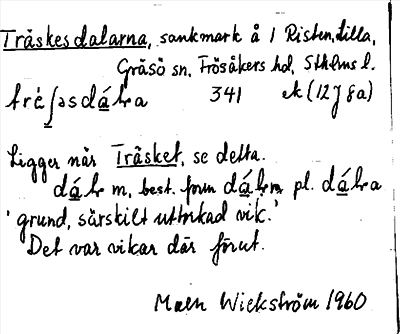 Träskesdalarna, sankmark å 1 Risten, Lilla,
Gräsö sn, Frösåkers hd, Sthlms l.
341 ek (12J 8a)
Ligger när Träsket, se detta.
m, best. form pl.
'grund, särskilt uttorkad vik.'
Det var vikar där förut.
Wickström 1960